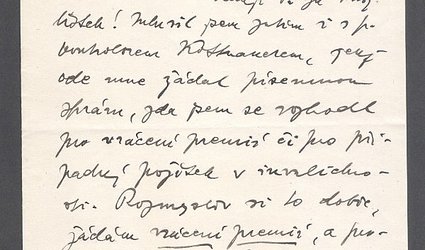 lístek! Mluvil jsem zatím i s p.
kontrolorem Kotknauerem, jenž
ode mne žádal písemnou
zprávu, zda jsem se rozhodl
pro vrácení premií či pro pří-
padný požitek v invalidno-
sti. Rozmysliv si to dobře,
žádám vrácení premií, a pro-